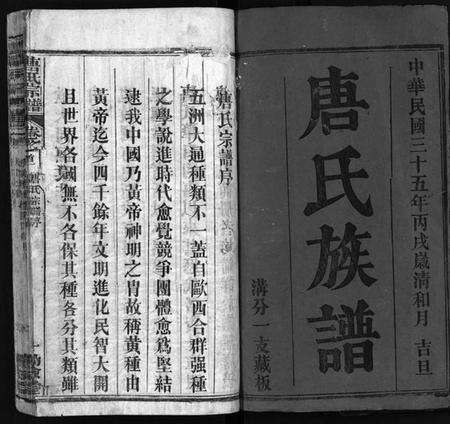 中華民國三十五年丙戌歲清和月 吉旦
唐氏族譜
溝分一支藏板
唐氏宗譜序
五洲大通種類不一蓋自歐西合群强種
之學說進時代愈覺競爭團體愈爲堅結
逮我中國乃黃帝神明之胄故稱黃種由
黃帝迄今四千餘年文明進化民智大開
且世界各國無不各保其種各分其類雖
唐氏宗譜 卷之首